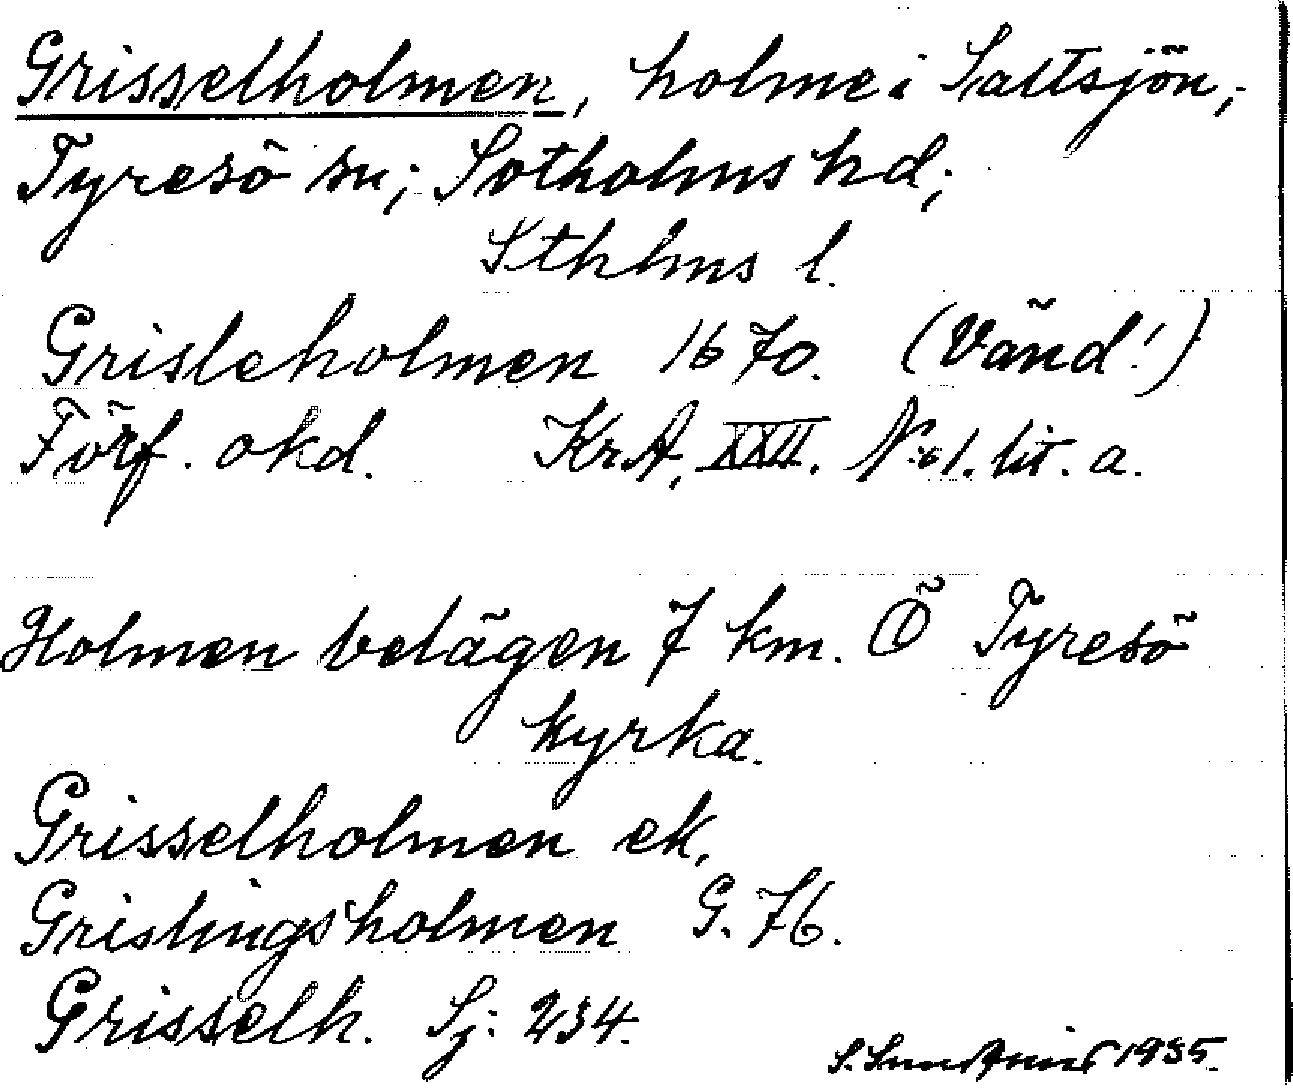 Grisselholmen, holme i Saltsjön,
Tyresö sn; Sotholms hd;
Sthlms l.
Grisleholmen 1670. (Vänd!)
Förf. okd. KrA, XXII. N:o 1. lit. a.
Holmen belägen 7 km. Ö Tyresö
kyrka.
Grisselholmen ek,
Grislingsholmen G. 76.
Grisselh. Sj: 234.
S. 1935.